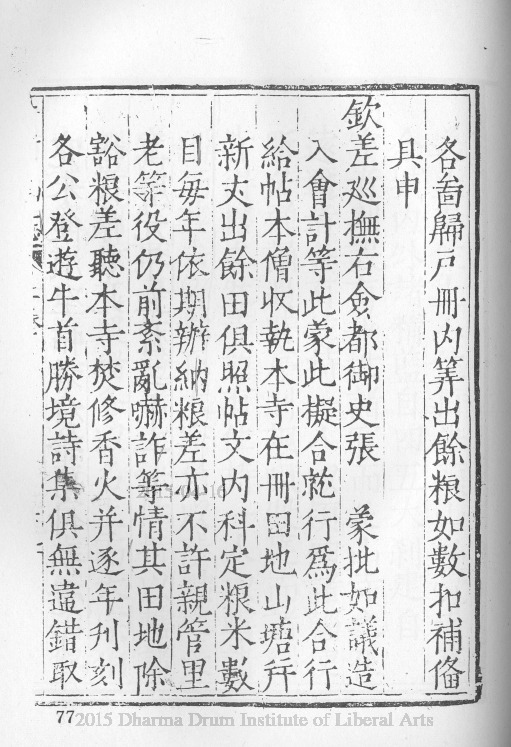 各啚歸户冊内筭出餘粮如數扣補俻
具申
欽差廵撫右僉都御史張　蒙批如議造
入會計等此蒙此擬合就行爲此合行
給帖本僧收執本寺在冊田地山塘并
新丈出餘田俱照帖文内科定粮米數
目每年依期辦納粮差亦不許親管里
老等役仍前紊亂嚇詐等情其田地除
豁粮差聽本寺焚修香火并逐年刋刻
各公登遊牛首勝境詩集俱無違錯取
77
2015 Dharma Drum Institute of Liberal Arts